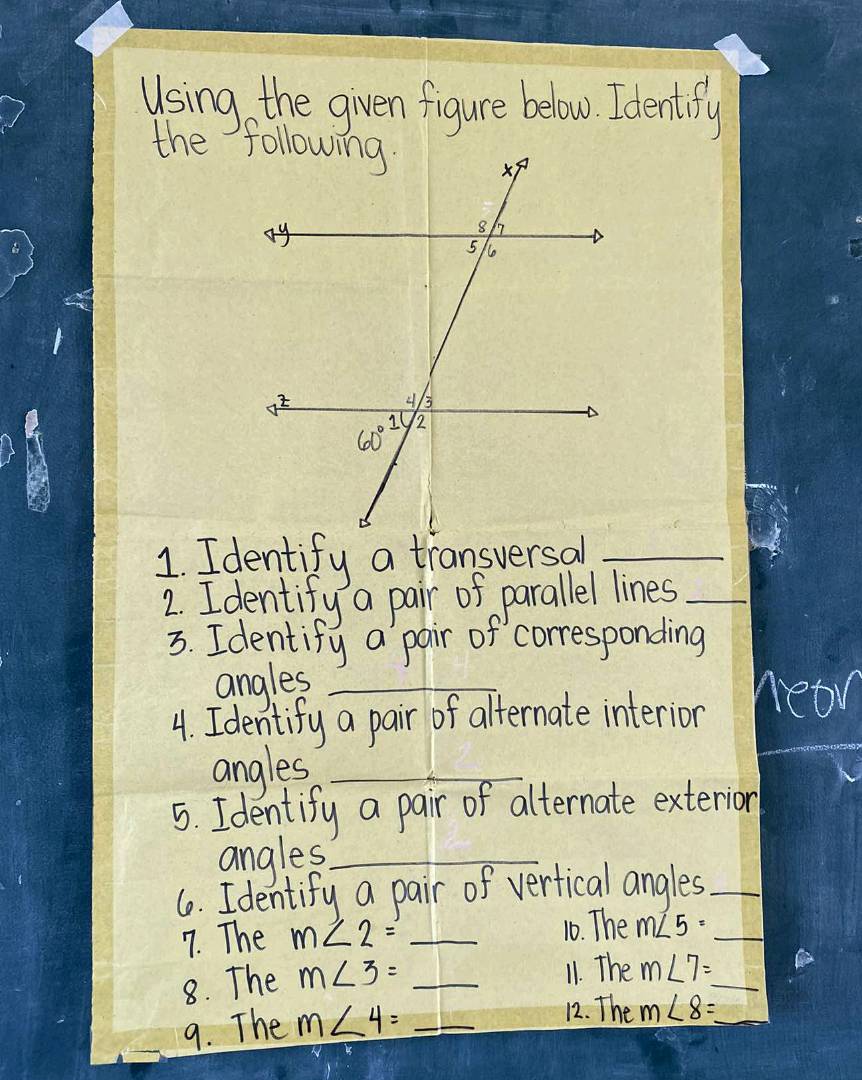 Using the given figure below. Identify
the following.
x
y
8 7
5 6
z
4 3
1 2
60°
1. Identify a transversal ______
2. Identify a pair of parallel lines ___
3. Identify a pair of corresponding
angles ________
4. Identify a pair of alternate interior
angles ________
5. Identify a pair of alternate exterior
angles ________
6. Identify a pair of vertical angles ___
7. The m∠2 = ___
10. The m∠5 = ___
8. The m∠3 = ___
11. The m∠7= ___
9. The m∠4= ___
12. The m∠8= ___